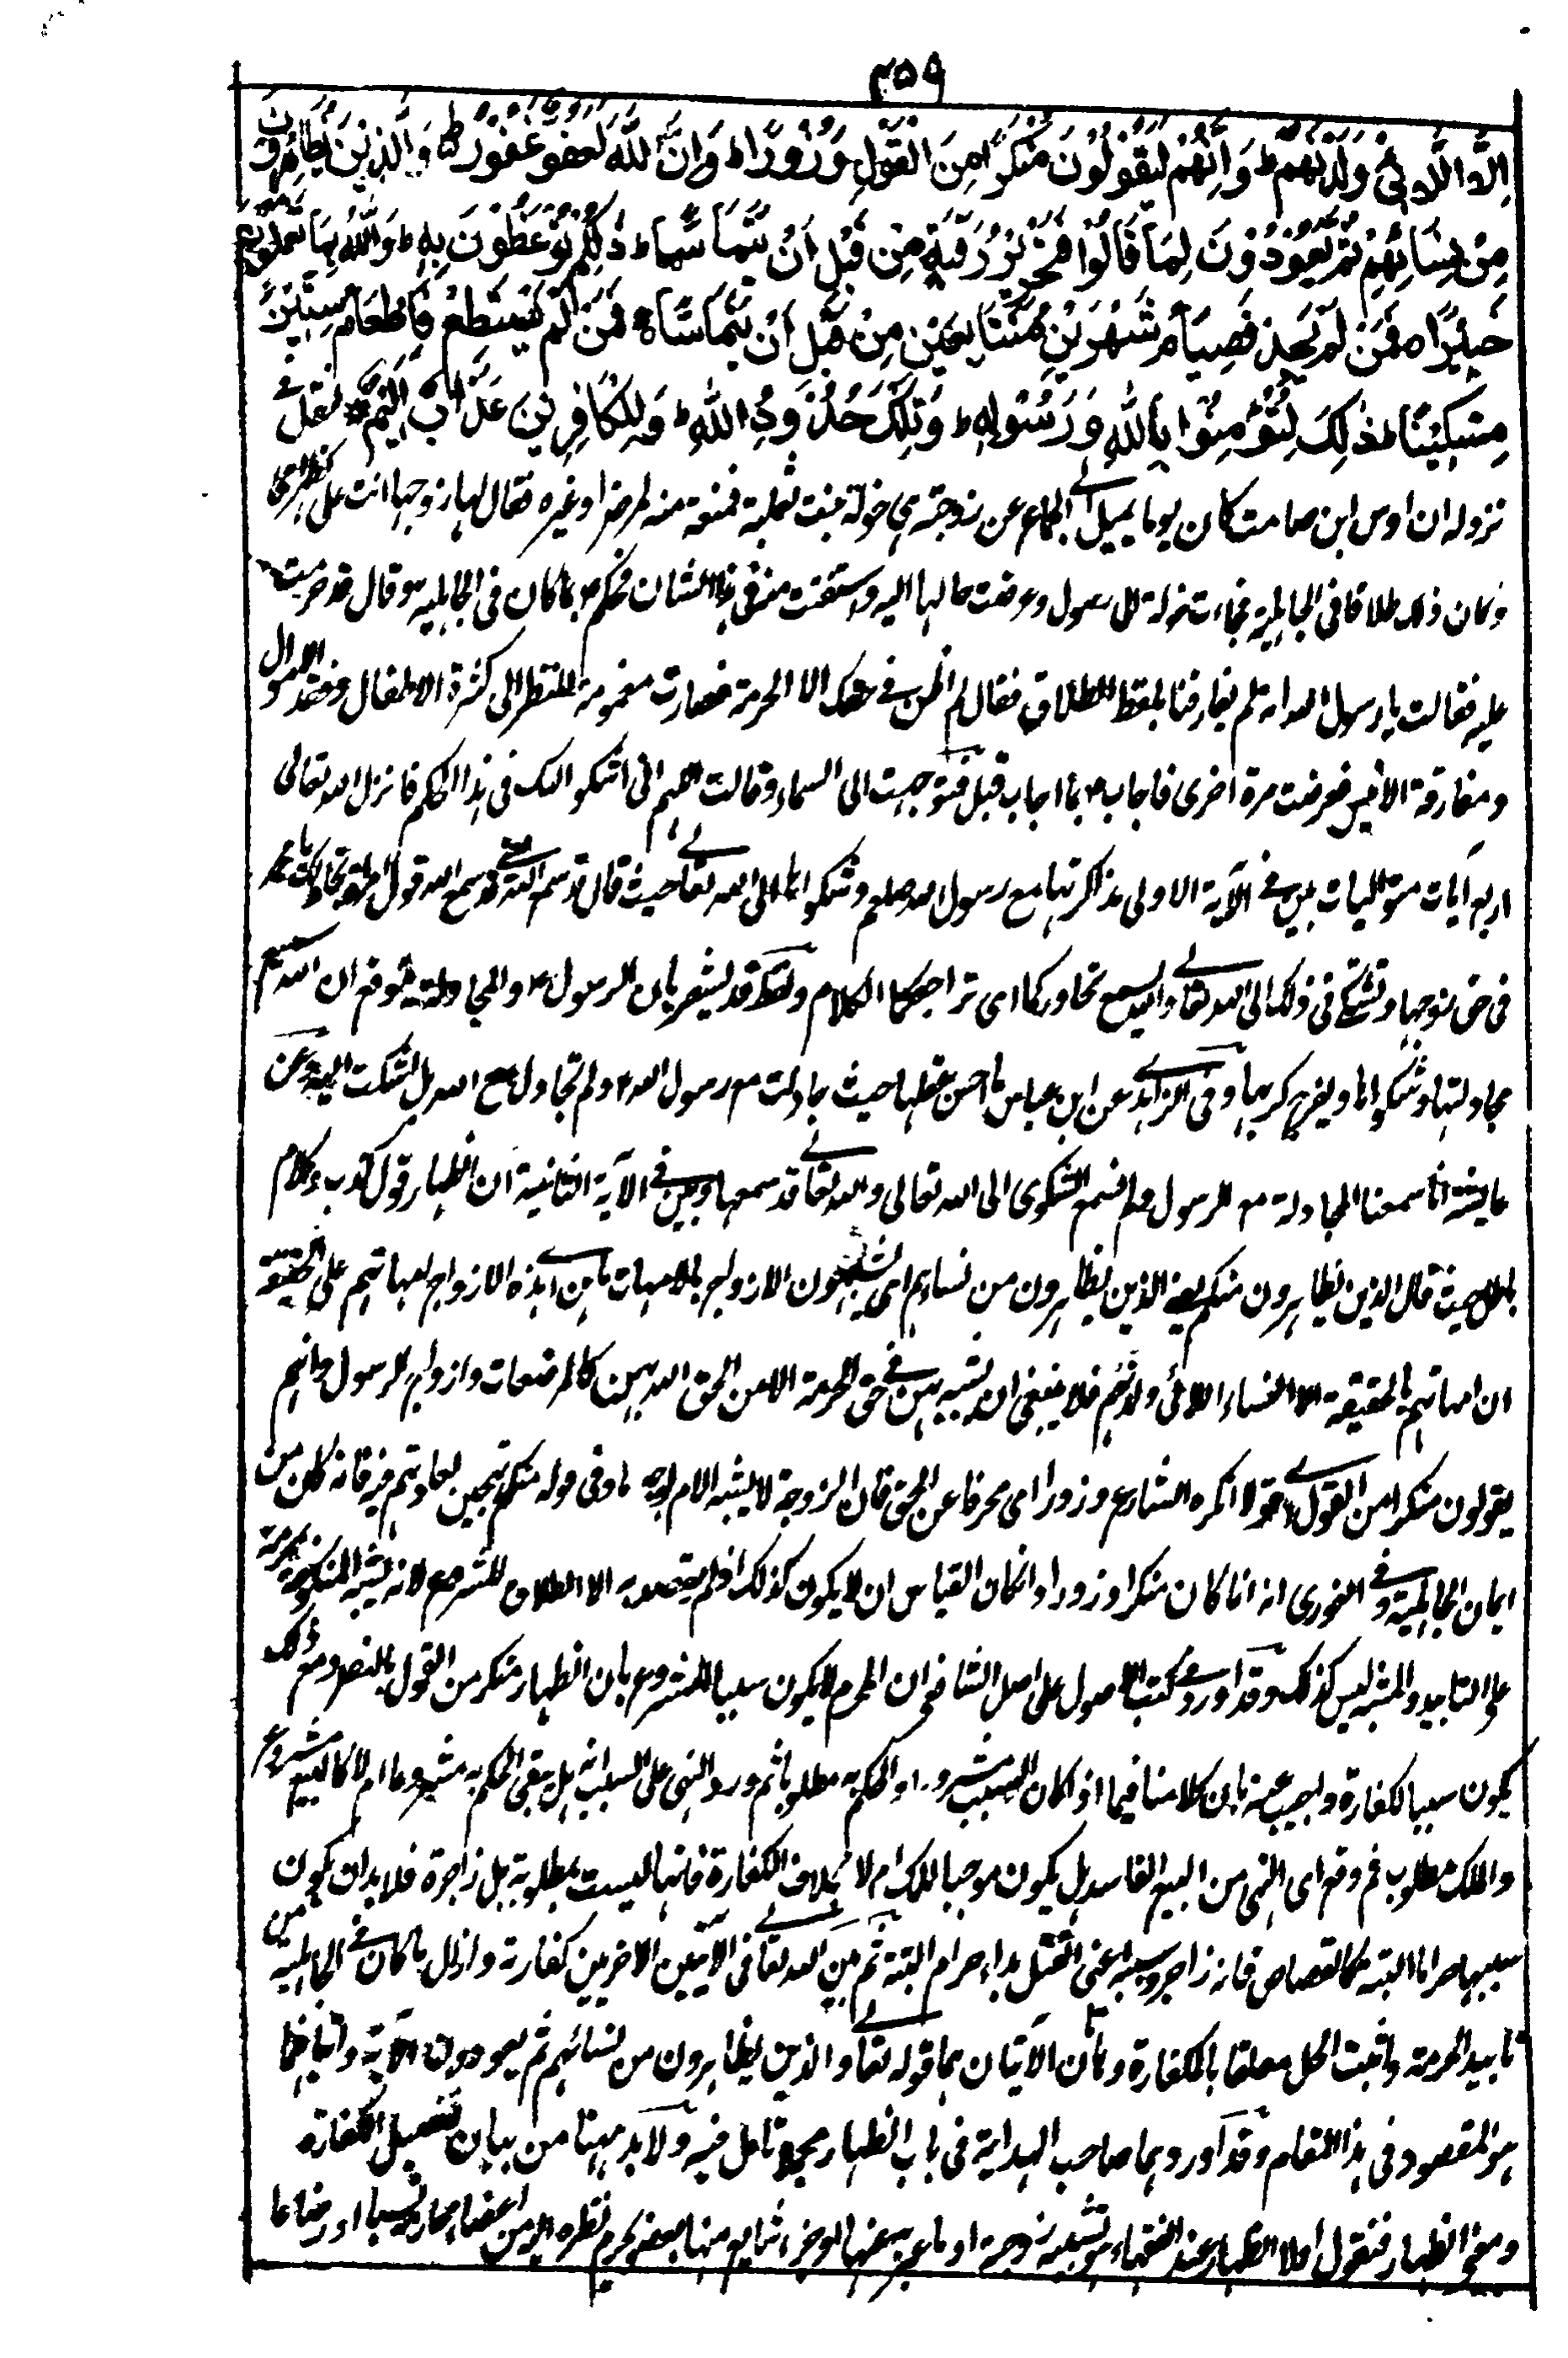 ٤٥٩
اِلَّا الّٰٓئِ وَلَدْنَهُمْ ؕ وَاِنَّهُمْ لَيَقُوْلُوْنَ مُنْكَرًا مِنَ الْقَوْلِ وَزُوْرًا ؕ وَاِنَّ اللّٰهَ لَعَفُوٌّ غَفُوْرٌ ؕ وَالَّذِيْنَ يُظَاهِرُوْنَ
مِنْ نِسَائِهِمْ ثُمَّ يَعُوْدُوْنَ لِمَا قَالُوْا فَتَحْرِيْرُ رَقَبَةٍ مِنْ قَبْلِ اَنْ يَتَمَاسَّا ؕ ذٰلِكُمْ تُوْعَظُوْنَ بِهٖ ؕ وَاللّٰهُ بِمَا تَعْمَلُوْنَ
خَبِيْرًا ہ فَمَنْ لَمْ يَجِدْ فَصِيَامُ شَهْرَيْنِ مُتَتَابِعَيْنِ مِنْ قَبْلِ اَنْ يَتَمَاسَّا ہ فَمَنْ لَمْ يَسْتَطِعْ فَاِطْعَامُ سِتِّيْنَ
مِسْكِيْنًا ؕ ذٰلِكَ لِتُؤْمِنُوْا بِاللّٰهِ وَرَسُوْلِهٖ ؕ وَتِلْكَ حُدُوْدُ اللّٰهِ ؕ وَلِلْكَافِرِيْنَ عَذَابٌ اَلِيْمٌ نقل في
نزوله ان اوس ابن صامت كان يوما يميل الى الجماع عن زوجته هي خولة بنت ثعلبة فمنعته منه لمرض او غيره فقال لها زوجها انت علي كظهر امي
وكان ذلك طلاقا في الجاهلية فجاءت خولة الى رسول وعرضت حالها اليه واستفتت منه في هذا الشان فحكم ؑ بما كان في الجاهلية وقال قد حرمت
عليه فقالت يا رسول الله انه لم يفارقنا بلفظ الطلاق فقال لم اظن في حقك الا الحرمة فصارت مغمومة للنظر الى كثرة الاطفال وفقد الاموال
ومفارقة الانيس فعرضت مرة اخرى فاجاب ؑ بما اجاب قبل فتوجهت الى السماء وقالت اللهم اني اشكو اليك في هذا الحكم فانزل الله تعالى
اربع آيات متواليات بين في الآية الاولى مذاكرتها مع رسول الله صلعم وشكواها الى الله تعا حيث قال قد سمع الله قد سمع الله قول المراة تجادلك يا محمد
في حق زوجها وتشتكي في ذلك الى الله تعا والله يسمع تحاوركما اى تراجعكما الكلام ولفظ قد يشعر بان الرسول ؑ والمجادلة يتوقع ان الله يسمع
مجادلتها وشكواها ويفرج كربها وفي الزاهدي عن ابن عباس ما احسن عقلها حيث جادلت مع رسول الله ؑ ولم تجادل مع الله بل شكت اليه وعن
عايشة انا سمعنا المجادلة مع الرسول ولم نسمع الشكوى الى الله تعالى والله تعا قد سمعها وبين في الآية الثانية ان الظهار قول كذب وكلام
باطل حيث قال الذين يظاهرون منكم يعني الذين يظاهرون من نسائهم اى يشبهون الازواج بالامهات ما هن اى هذه الازواج امهاتهم على الحقيقة
ان امهاتهم بالحقيقة الا النساء اللائي ولدنهم فلا ينبغي ان يشبه بهن في حق الحرمة الا من الحق الله بهن كالمرضعات وازواج الرسول وانهم
يقولون منكرا من القول اى قولا انكره الشارع وزورا اى محرفا عن الحق فان الزوجة لا يشبه الام بوجه ما وفي قوله منكم تهجين لعادتهم فيه فانه كان من
ايمان الجاهلية وفي الغوري انه انما كان منكرا وزورا وانكان القياس ان لا يكون كذلك اذ لم يقصد به الا الطلاق المشروع لانه يشبه المنكوحة بمحرمة
على التابيد والمشبه ليس كذلك وقد اورد في كتب الاصول على اصل الشافعي ان المحرم لا يكون سببا للمشروع بان الظهار منكر من القول بالنص ومع ذلك
يكون سببا للكفارة واجيب عنه بان كلامنا فيما اذا كان السبب مشروعا والحكم به مطلوبا ثم ورد النهي على السبب انه هل يبقى الحكم به مشروعا ام لا كالبيع مشروع
والملك مطلوب ثم وقع اى النهي من البيع الفاسد هل يكون موجبا للملك ام لا بخلاف الكفارة فانها ليست بمطلوبة بل زاجرة فلا بد ان يكون
سببها حراما البتة كالقصاص فانه زاجر وسببه اعنى القتل بداء حرام البتة ثم بين الله تعا في الآيتين الاخريين كفارته وازال ما كان في الجاهلية من
تابيد الحرمة واثبت الحل معلقا بالكفارة وهاتان الآيتان هما قوله تعا والذين يظاهرون من نسائهم ثم يعودون الآية واتيانهما
هو المقصود في هذا المقام وقد اوردهما صاحب الهداية في باب الظهار مجملا تامل فيه ولا بد ههنا من بيان تفصيل الكفارة
ومعنى الظهار فنقول اولا الظهار عند الفقهاء هو تشبيه زوجة او ما عبر به عنها او جزء شايع منها بعضو يحرم نظره اليه من اعضاء محارمه نسبا او رضاعا